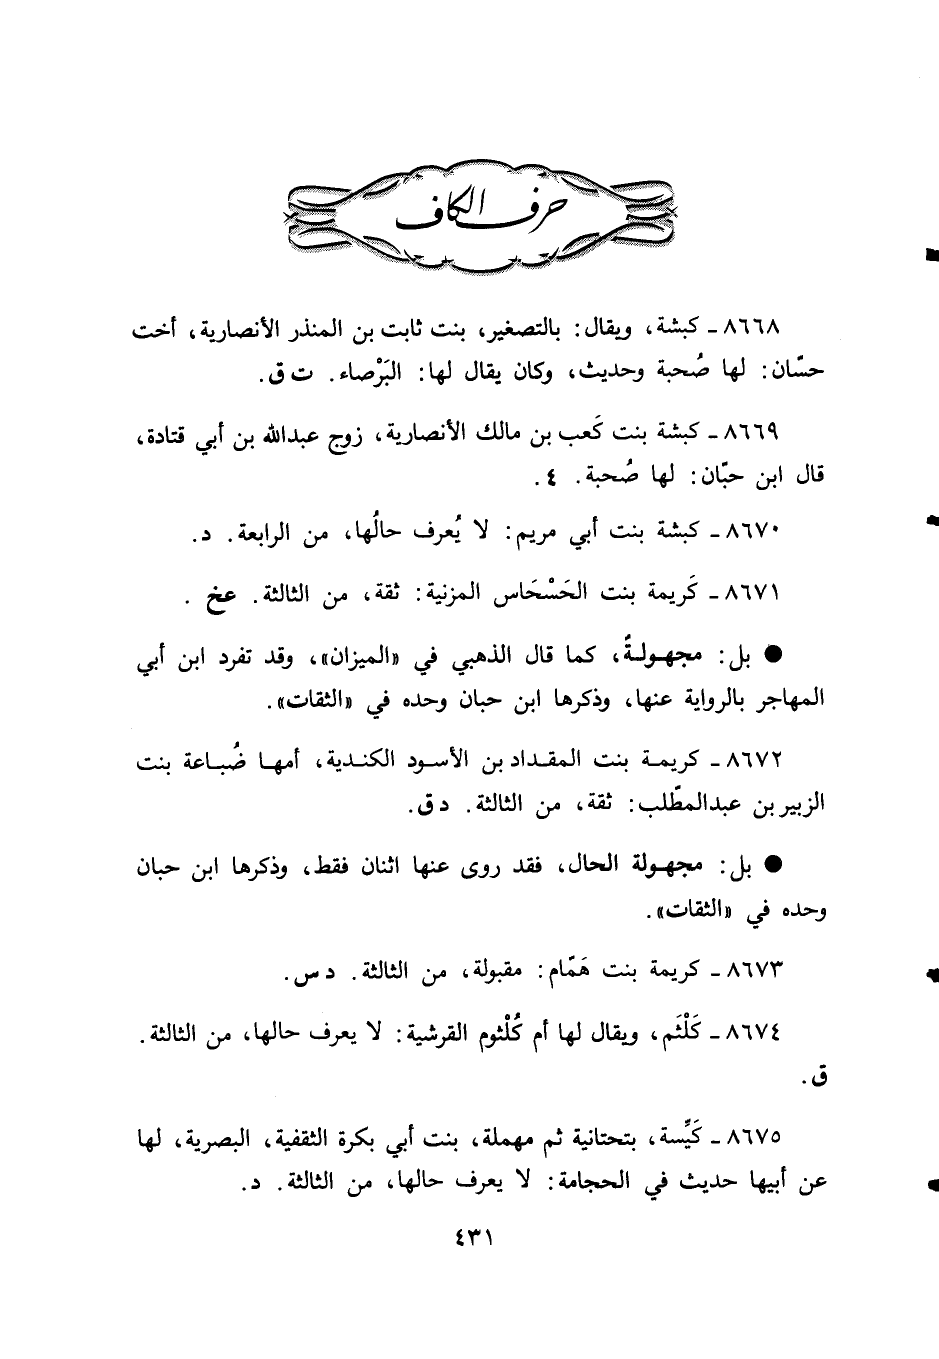 حرف الكاف
٨٦٦٨ ـ كبشة، ويقال: بالتصغير، بنت ثابت بن المنذر الأنصارية، أخت
حسّان: لها صُحبة وحديث، وكان يقال لها: البَرْصاء. ت ق.
٨٦٦٩ ـ كبشة بنت كَعب بن مالك الأنصارية، زوج عبدالله بن أبي قتادة،
قال ابن حبّان: لها صُحبة. ٤.
٨٦٧٠ ـ كبشة بنت أبي مريم: لا يُعرف حالُها، من الرابعة. د.
٨٦٧١ ـ كَريمة بنت الحَسْحَاس المزنية: ثقة، من الثالثة. عخ.
● بل: مجهـولـةٌ، كما قال الذهبي في «الميزان»، وقد تفرد ابن أبي
المهاجر بالرواية عنها، وذكرها ابن حبان وحده في «الثقات».
٨٦٧٢ ـ كريمـة بنت المقـداد بن الأسـود الكنـدية، أمهـا ضُبـاعة بنت
الزبير بن عبدالمطّلب: ثقة، من الثالثة. د ق.
● بل: مجهـولة الحال، فقد روى عنها اثنان فقط، وذكرها ابن حبان
وحده في «الثقات».
٨٦٧٣ ـ كريمة بنت هَمّام: مقبولة، من الثالثة. د س.
٨٦٧٤ ـ كَلْثَم، ويقال لها أم كُلْثوم القرشية: لا يعرف حالها، من الثالثة.
ق.
٨٦٧٥ ـ كَيِّسة، بتحتانية ثم مهملة، بنت أبي بكرة الثقفية، البصرية، لها
عن أبيها حديث في الحجامة: لا يعرف حالها، من الثالثة. د.
٤٣١